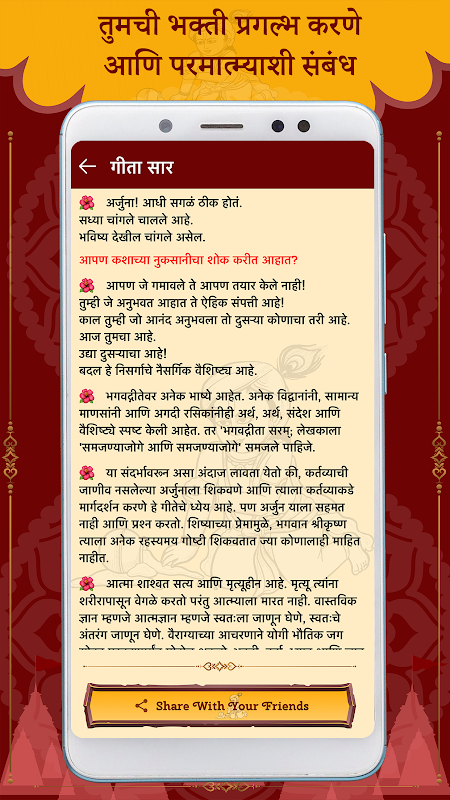 तुमची भक्ती प्रगल्भ करणे
आणि परमात्म्याशी संबंध
गीता सार
अर्जुना! आधी सगळं ठीक होतं.
सध्या चांगले चालले आहे.
भविष्य देखील चांगले असेल.
आपण कशाच्या नुकसानीचा शोक करीत आहात?
आपण जे गमावले ते आपण तयार केले नाही!
तुम्ही जे अनुभवत आहात ते ऐहिक संपत्ती आहे!
काल तुम्ही जो आनंद अनुभवला तो दुसऱ्या कोणाचा तरी आहे.
आज तुमचा आहे.
उद्या दुसऱ्याचा आहे!
बदल हे निसर्गाचे नैसर्गिक वैशिष्ट्य आहे.
भगवद्गीतेवर अनेक भाष्ये आहेत. अनेक विद्वानांनी, सामान्य
माणसांनी आणि अगदी रसिकांनीही अर्थ, अर्थ, संदेश आणि
वैशिष्ट्ये स्पष्ट केली आहेत. तर 'भगवद्गीता सरम्; लेखकाला
'समजण्याजोगे आणि समजण्याजोगे' समजले पाहिजे.
या संदर्भावरून असा अंदाज लावता येतो की, कर्तव्याची
जाणीव नसलेल्या अर्जुनाला शिकवणे आणि त्याला कर्तव्याकडे
मार्गदर्शन करणे हे गीतेचे ध्येय आहे. पण अर्जुन याला सहमत
नाही आणि प्रश्न करतो. शिष्याच्या प्रेमामुळे, भगवान श्रीकृष्ण
त्याला अनेक रहस्यमय गोष्टी शिकवतात ज्या कोणालाही माहित
नाहीत.
आत्मा शाश्वत सत्य आणि मृत्यूहीन आहे. मृत्यू त्यांना
शरीरापासून वेगळे करतो परंतु आत्म्याला मारत नाही. वास्तविक
ज्ञान म्हणजे आत्मज्ञान म्हणजे स्वतःला जाणून घेणे, स्वतःचे
अंतरंग जाणून घेणे. वैराग्याच्या आचरणाने योगी भौतिक जग
Share With Your Friends